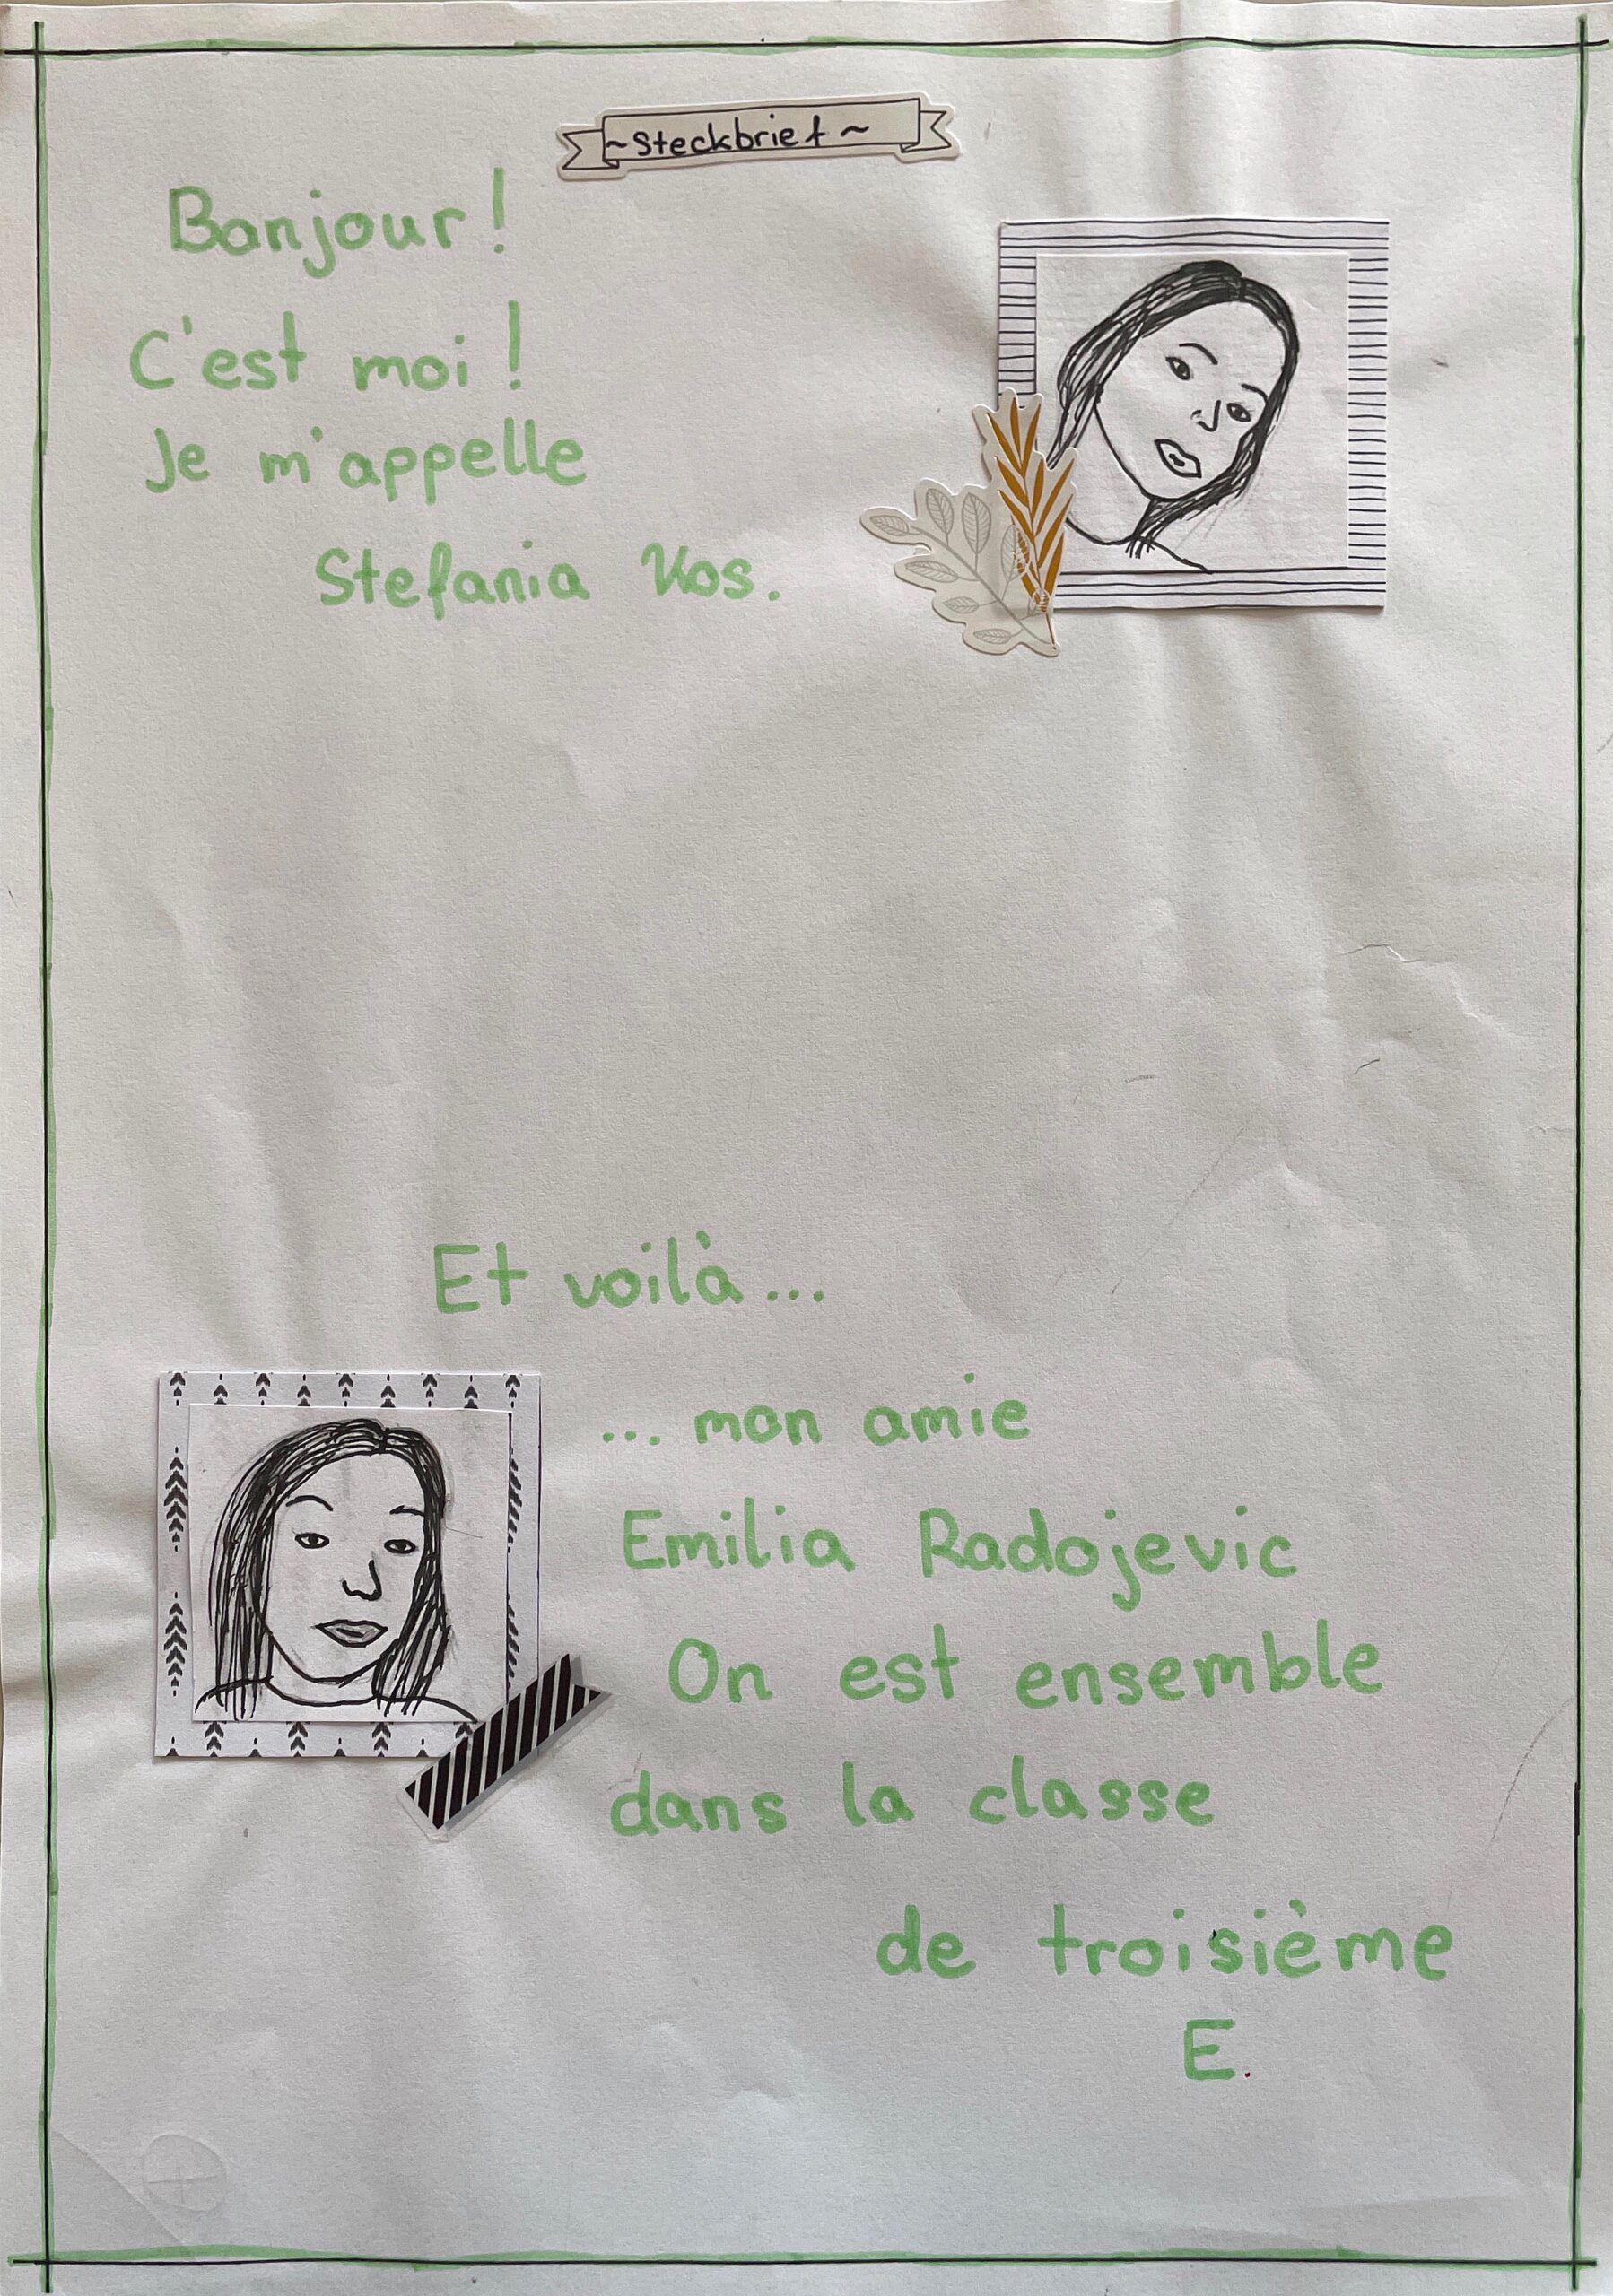 ~Steckbrief~
Bonjour!
C'est moi!
Je m'appelle
Stefania Kos.
Et voilà...
... mon amie
Emilia Radojevic
On est ensemble
dans la classe
de troisième
E.